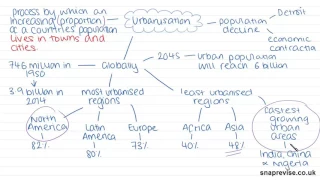 process by which an
increasing (proportion)
of a countries population
lives in towns and
cities.
Urbanisation
population
decline
Detroit
economic
contractio
746 million in
1950
3.9 billion in
2014
Globally
2045
Urban population
will reach 6 billion
most urbanised
regions
least urbanised
regions
North
America
82%
Latin
America
80%
Europe
73%
Africa
40%
Asia
48%
Fastest
growing
urban
areas
India, China
& Nigeria
snaprevise.co.uk